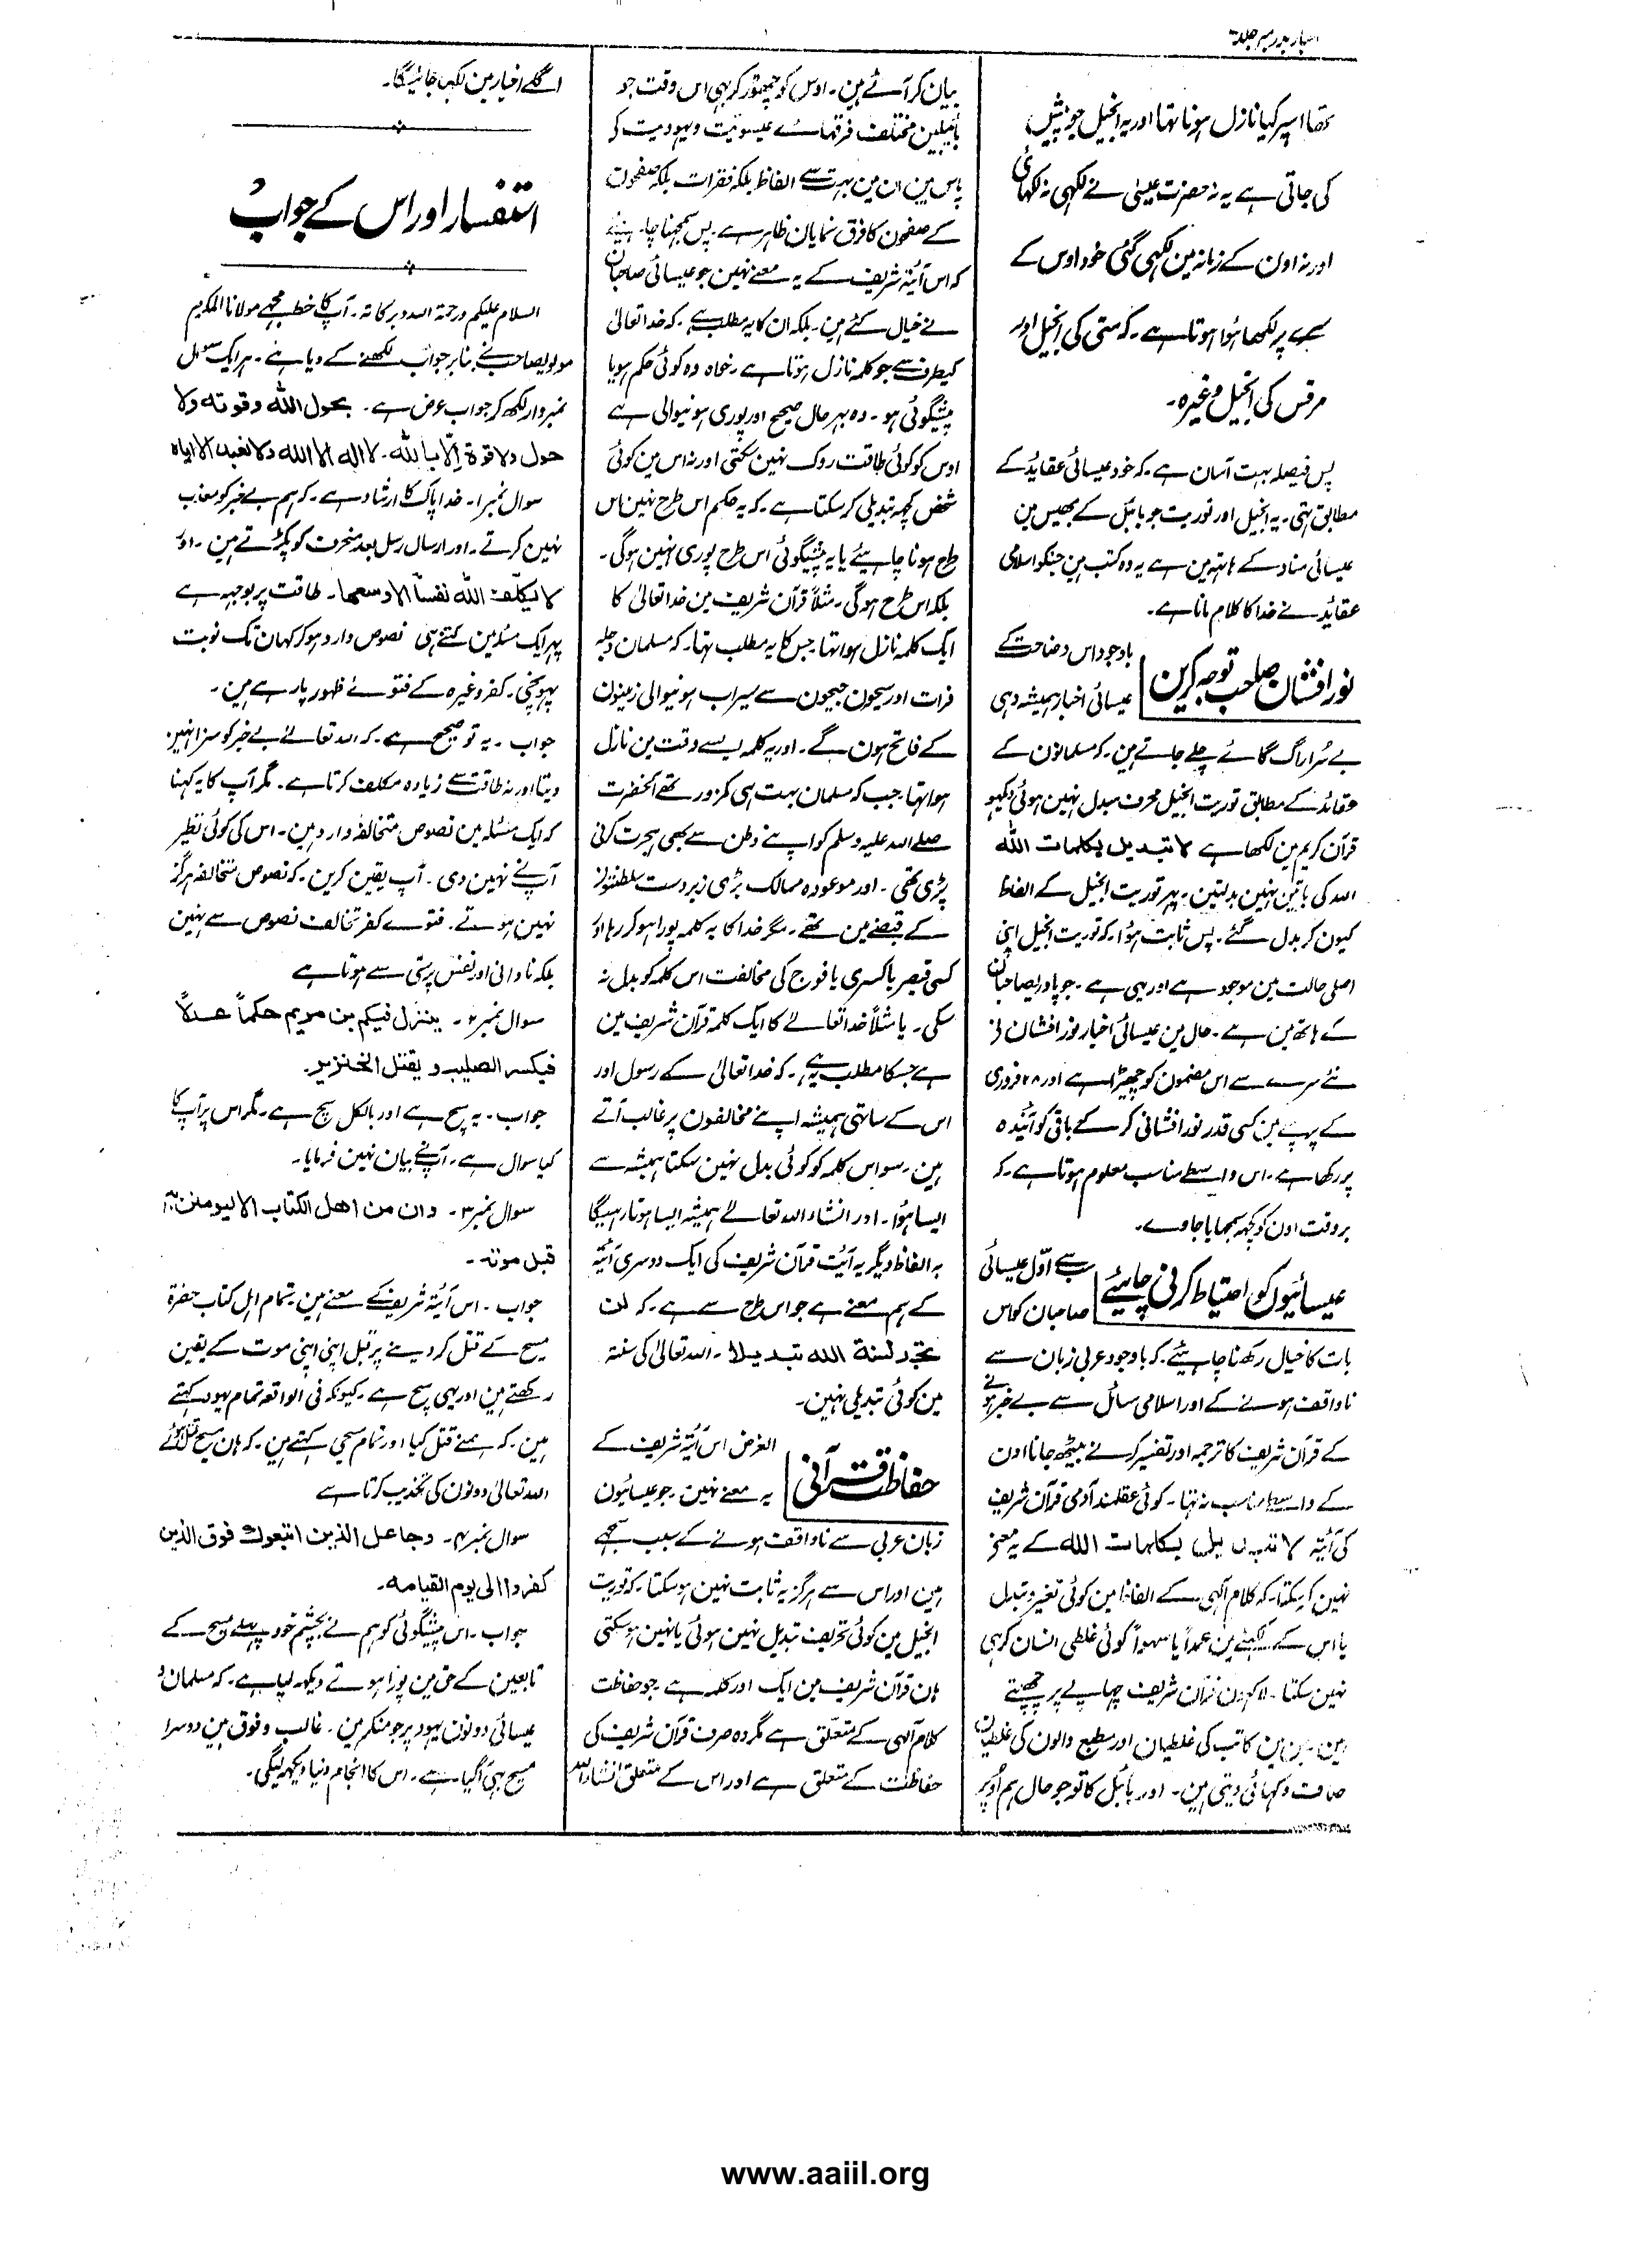 اخبار بدر نمبر جلد
تھا اسپر کیا نازل ہونا تہا اور یہ انجیل جو پیش
کی جاتی ہے یہ نہ حضرت عیسیٰ نے لکھی نہ لکھائی
اور نہ اون کے زمانہ مین لکھی گئی خود اوس کے
سرے پر لکھا ہوا ہوتا ہے ۔ کہ متی کی انجیل اور
مرقس کی انجیل وغیرہ ۔
پس فیصلہ بہت آسان ہے ۔ کہ خود عیسائی عقاید کے
مطابق بہی ۔ یہ انجیل اور توریت جو بائبل کے بھیس مین
عیسائی مناد کے ہاتہہ مین ہے یہ وہ کتب ہین جنکو اسلامی
عقاید نے خدا کا کلام مانا ہے ۔
نور افشان صاحب توجہ کرین
باوجود اس وضاحت کے
عیسائی اخبار ہمیشہ وہی
بے سُرا راگ گائے چلے جاتے ہین ۔ کہ مسلمانون کے
عقائد کے مطابق توریت انجیل محرف مبدل نہین ہوئی دیکہو
قرآن کریم مین لکھا ہے لا تبدیل لکلمات اللہ
اللہ کی باتین نہین بدلتین ۔ پہر توریت انجیل کے الفاظ
کیون کر بدل گئے ۔ پس ثابت ہوا ۔ کہ توریت انجیل اپنی
اصلی حالت مین موجود ہے اور یہی ہے ۔ جو پادریصاحبان
کے ہاتھ مین ہے ۔ حال مین عیسائی اخبار نور افشان نے
نئے سرے سے اس مضمون کو چھیڑا ہے اور ۲۸ فروری
کے پرچے مین کسی قدر نور افشانی کر کے باقی کو آئیندہ
پر رکھا ہے ۔ اس واسطے مناسب معلوم ہوتا ہے ۔ کہ
بر وقت اون کو کچہہ سمجہایا جاوے ۔
عیسائیوں کو احتیاط کرنی چاہیئے
سب سے اوّل عیسائی
صاحبان کو اس
بات کا خیال رکھنا چاہیئے ۔ کہ باوجود عربی زبان سے
ناواقف ہونے کے اور اسلامی مسائل سے بے خبر ہونے
کے قرآن شریف کا ترجمہ اور تفسیر کرنے بیٹھ جانا اون
کے واسطے مناسب نہ تہا ۔ کوئی عقلمند آدمی قرآن شریف
کی آئیۃ لا تبدیل لکلمات اللہ کے یہ معنی
نہین کر سکتا ۔ کہ کلام الٰہی کے الفاظ مین کوئی تغیر و تبدل
یا اس کے لکہنے مین عمداً یا سہواً کوئی غلطی انسان کر ہی
نہین سکتا ۔ لاکہون قرآن شریف چہاپے پر چھپتے
ہین ۔ جن مین کاتب کی غلطیان اور مطبع والون کی غلطیان
صاف دکہائی دیتی ہین ۔ اور بائبل کا تو جو حال ہم اوپر
بیان کر آئے ہین ۔ اوس کو چھوڑ کر بہی اس وقت جو
بائیبلین مختلف فرقہائے عیسویت و یہودیت کے
پاس ہین ان مین بہت سے الفاظ بلکہ فقرات بلکہ صفحون
کے صفحون کا فرق نمایان ظاہر ہے ۔ پس سمجہنا چاہیئے
کہ اس آئیۃ شریف کے یہ معنے نہین جو عیسائی صاحبان
نے خیال کئے ہین ۔ بلکہ ان کا یہ مطلب ہے ۔ کہ خدا تعالیٰ
کیطرف سے جو کلمہ نازل ہوتا ہے ۔ خواہ وہ کوئی حکم ہو یا
پیشگوئی ہو ۔ وہ بہر حال صحیح اور پوری ہونیوالی ہے
اوس کو کوئی طاقت روک نہین سکتی اور نہ اس مین کوئی
شخص کچہہ تبدیلی کر سکتا ہے ۔ کہ یہ حکم اس طرح نہین اس
طرح ہونا چاہیئے یا یہ پیشگوئی اس طرح پوری نہین ہوگی ۔
بلکہ اس طرح ہوگی ۔ مثلاً قرآن شریف مین خدا تعالیٰ کا
ایک کلمہ نازل ہوا تہا ۔ جس کا یہ مطلب تہا ۔ کہ مسلمان دجلہ
فرات اور سیحون جیحون سے سیراب ہونیوالی زمینون
کے فاتح ہون گے ۔ اور یہ کلمہ ایسے وقت مین نازل
ہوا تہا ۔ جب کہ مسلمان بہت ہی کمزور تھے آنحضرت
صلے اللہ علیہ وسلم کو اپنے وطن سے بھی ہجرت کرنی
پڑی تھی ۔ اور موعودہ ممالک بڑی زبردست سلطنتوں
کے قبضے مین تھے ۔ مگر خدا کا یہ کلمہ پورا ہو کر رہا اور
کسی قیصر یا کسری یا فوج کی مخالفت اس کلمہ کو بدل نہ
سکی ۔ یا مثلاً خدا تعالےٰ کا ایک کلمہ قرآن شریف مین
ہے جسکا مطلب یہ ہے ۔ کہ خدا تعالیٰ کے رسول اور
اس کے ساتھی ہمیشہ اپنے مخالفون پر غالب آتے
ہین ۔ سو اس کلمہ کو کوئی بدل نہین سکتا ہمیشہ سے
ایسا ہوا ۔ اور انشاء اللہ تعالےٰ ہمیشہ ایسا ہوتا رہیگا
بہ الفاظ دیگر یہ آئیت قرآن شریف کی ایک دوسری آئیۃ
کے ہم معنے ہے جو اس طرح سے ہے ۔ کہ لن
تجد لسنۃ اللہ تبدیلا ۔ اللہ تعالیٰ کی سنۃ
مین کوئی تبدیلی نہین ۔
حفاظت قرآنی
الغرض اس آئیۃ شریف کے
یہ معنے نہین ۔ جو عیسائیون
زبان عربی سے ناواقف ہونے کے سبب سمجہے
ہین اور اس سے ہرگز یہ ثابت نہین ہو سکتا ۔ کہ توریت
انجیل مین کوئی تحریف تبدیل نہین ہوئی یا نہین ہو سکتی
ہان قرآن شریف مین ایک اور کلمہ ہے جو حفاظت
کلام الٰہی کے متعلق ہے مگر وہ صرف قرآن شریف کی
حفاظت کے متعلق ہے اور اس کے متعلق انشاء اللہ
اگلے اخبار مین لکہا جائیگا ۔
استفسار اور اس کے جواب
السلام علیکم ورحمۃ اللہ وبرکاتہ ۔ آپ کا خط مجہے مولانا المکرم
مولویصاحب نے بنا بر جواب لکھنے کے دیا ہے ۔ ہر ایک سوال
نمبروار لکھ کر جواب عرض ہے ۔ بحول اللہ وقوتہ ولا
حول ولا قوۃ الّا باللہ ۔ لا الہ الا اللہ ولا نعبد الا ایاہ
سوال نمبر ۱ ۔ خدا پاک کا ارشاد ہے ۔ کہ ہم بے خبر کو معذب
نہین کرتے ۔ اور ارسال رسل بعد منحرف کو پکڑتے ہین ۔ اور
لا یکلف اللہ نفساً الا وسعہا ۔ طاقت پر بوجہہ ہے
پہر ایک مسئلہ مین کتنے ہی نصوص وارد ہو کر کہان تک نوبت
پہونچی ۔ کفر وغیرہ کے فتوے ظہور پا رہے ہین ۔
جواب ۔ یہ تو صحیح ہے ۔ کہ اللہ تعالےٰ بے خبر کو سزا نہین
دیتا اور نہ طاقت سے زیادہ مکلف کرتا ہے ۔ مگر آپ کا یہ کہنا
کہ ایک مسئلہ مین نصوص متخالفہ وارد ہین ۔ اس کی کوئی نظیر
آپ نے نہین دی ۔ آپ یقین کرین ۔ کہ نصوص متخالفہ ہرگز
نہین ہوتے ۔ فتوے کفر تخالف نصوص سے نہین
بلکہ نادانی اور نفس پرستی سے ہوتا ہے
سوال نمبر ۲ ۔ ینزل فیکم بن مریم حکماً عدلاً
فیکسر الصلیب و یقتل الخنزیر ۔
جواب ۔ یہ سچ ہے اور بالکل سچ ہے ۔ مگر اس پر آپ کا
کیا سوال ہے ۔ آپنے بیان نہین فرمایا ۔
سوال نمبر ۳ ۔ وان من اھل الکتاب الا لیومنن بہ
قبل موتہ ۔
جواب ۔ اس آئیۃ شریف کے معنے ہین ۔ تمام اہل کتاب حضرۃ
مسیح کے قتل کر دینے پر قبل اپنی اپنی موت کے یقین
رکھتے ہین اور یہی سچ ہے ۔ کیونکہ فی الواقعہ تمام یہود کہتے
ہین ۔ کہ ہمنے قتل کیا اور تمام مسیحی کہتے ہین ۔ کہ ہان مسیح قتل ہوئے
اللہ تعالیٰ دونون کی تکذیب کرتا ہے
سوال نمبر ۴ ۔ وجاعل الذین اتبعوک فوق الذین
کفروا الی یوم القیامہ ۔
جواب ۔ اس پیشگوئی کو ہم نے بچشم خود پہلے مسیح کے
تابعین کے حق مین پورا ہوتے دیکہہ لیا ہے ۔ کہ مسلمان و
عیسائی دونون یہود پر جو منکر ہین ۔ غالب و فوق ہین دوسرا
مسیح بہی آگیا ہے ۔ اس کا انجام دنیا دیکہہ لیگی ۔
www.aaiil.org